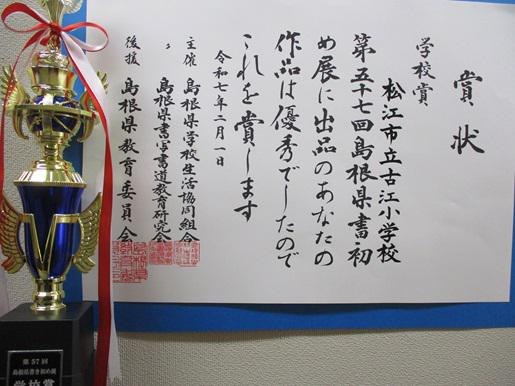 賞状
学校賞
松江市立古江小学校
第五十七回島根県書初
め展に出品のあなたの
作品は優秀でしたので
これを賞します
令和七年二月一日
主催 島根県学校生活協同組合
〃 島根県書写書道教育研究会
後援 島根県教育委員会
第57回
島根県書き初め展
学校賞